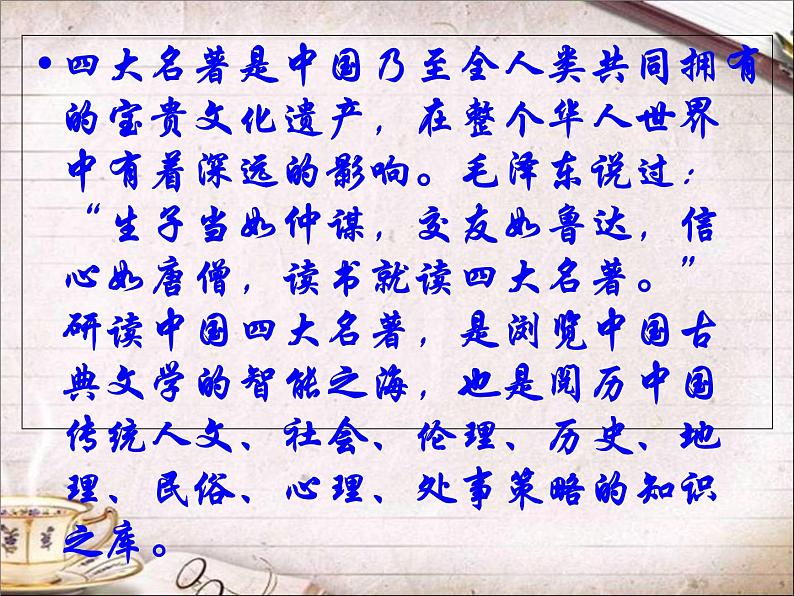 •四大名著是中国乃至全人类共同拥有
的宝贵文化遗产，在整个华人世界
中有着深远的影响。毛泽东说过：
“生子当如仲谋，交友如鲁达，信
心如唐僧，读书就读四大名著。”
研读中国四大名著，是浏览中国古
典文学的智能之海，也是阅历中国
传统人文、社会、伦理、历史、地
理、民俗、心理、处事策略的知识
之库。